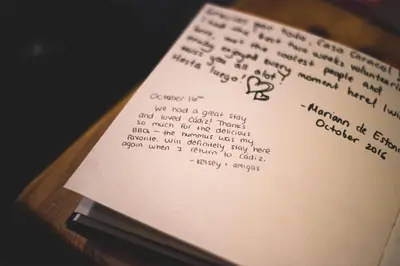 Gracias por todo, Casa Caracol
I had the best two weeks volunteering
the coolest people and
really enjoyed every moment here! I wi
miss you all alot!
Hasta luego!
- Mariann de Estoni
October 2016
October 14th
We had a great stay
and loved Cádiz! Thanks
so much for the delicious
BBQ - the hummus was my
favorite. Will definitely stay here
again when I return to Cadiz.
- Kelsey + amigas